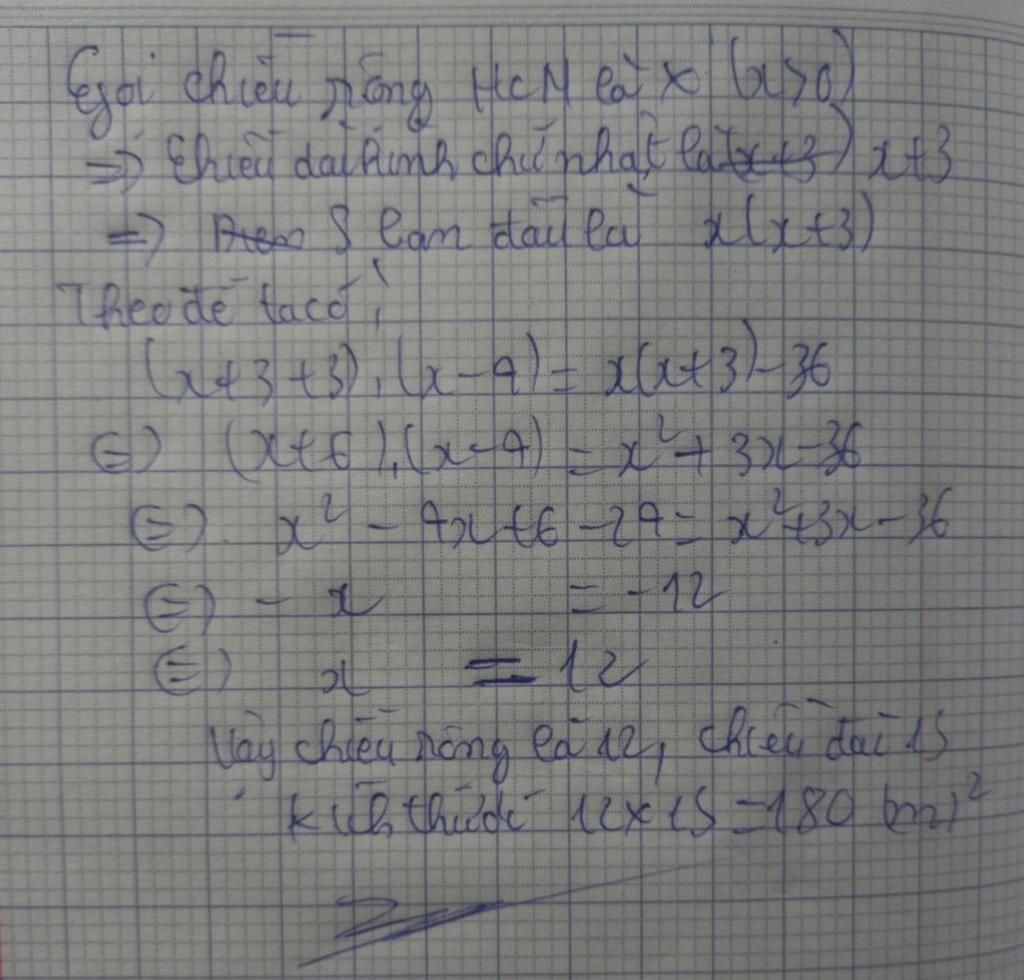 Gọi chiều rộng HCN là x (x>0)
=> Chiều dài hình chữ nhật là (x+3) x+3
=> S ban đầu là x(x+3)
Theo đề ta có:
(x+3+3).(x-4) = x(x+3)-36
<=> (x+6).(x-4) = x²+3x-36
<=> x² - 4x+6 -24 = x²+3x-36
<=> - x = -12
<=> x = 12
Vậy chiều rộng là 12, chiều dài 15
kích thước 12x15 = 180 (m)²